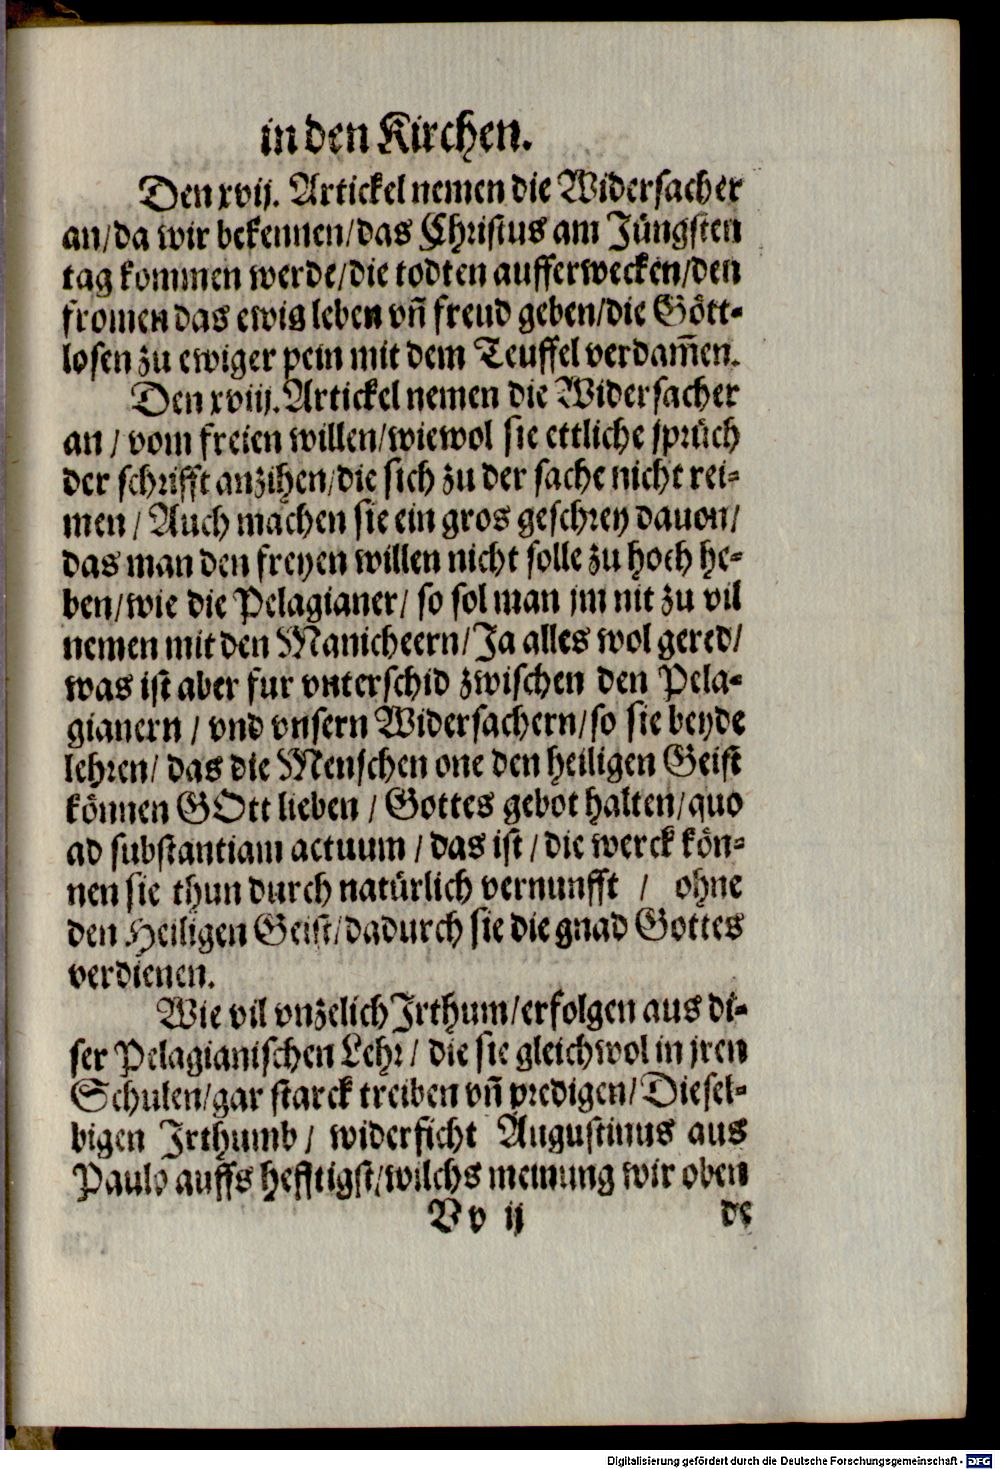 in den Kirchen.
Den xvij. Artickel nemen die Widersacher
an/da wir bekennen/das Christus am Jüngsten
tag kommen werde/die todten aufferwecken/den
fromen das ewig leben vñ freud geben/die Gött-
losen zu ewiger pein mit dem Teuffel verdam̃en.
Den xviij. Artickel nemen die Widersacher
an / vom freien willen/wiewol sie ettliche sprüch
der schrifft anzihen/die sich zu der sache nicht rei-
men / Auch machen sie ein gros geschrey dauon/
das man den freyen willen nicht solle zu hoch he-
ben/wie die Pelagianer/ so sol man jm nit zu vil
nemen mit den Manicheern/Ja alles wol gered/
was ist aber fur vnterschid zwischen den Pela-
gianern / vnd vnsern Widersachern/so sie beyde
lehren/ das die Menschen one den heiligen Geist
können GOtt lieben / Gottes gebot halten/quo
ad substantiam actuum / das ist / die werck kön-
nen sie thun durch natürlich vernunfft / ohne
den Heiligen Geist/dadurch sie die gnad Gottes
verdienen.
Wie vil vnzelich Irthum/erfolgen aus di-
ser Pelagianischen Lehr/ die sie gleichwol in jren
Schulen/gar starck treiben vñ predigen/Diesel-
bigen Irthumb/ widerficht Augustinus aus
Paulo auffs hefftigst/wilchs meinung wir oben
Vv ij de
Digitalisierung gefördert durch die Deutsche Forschungsgemeinschaft - DFG